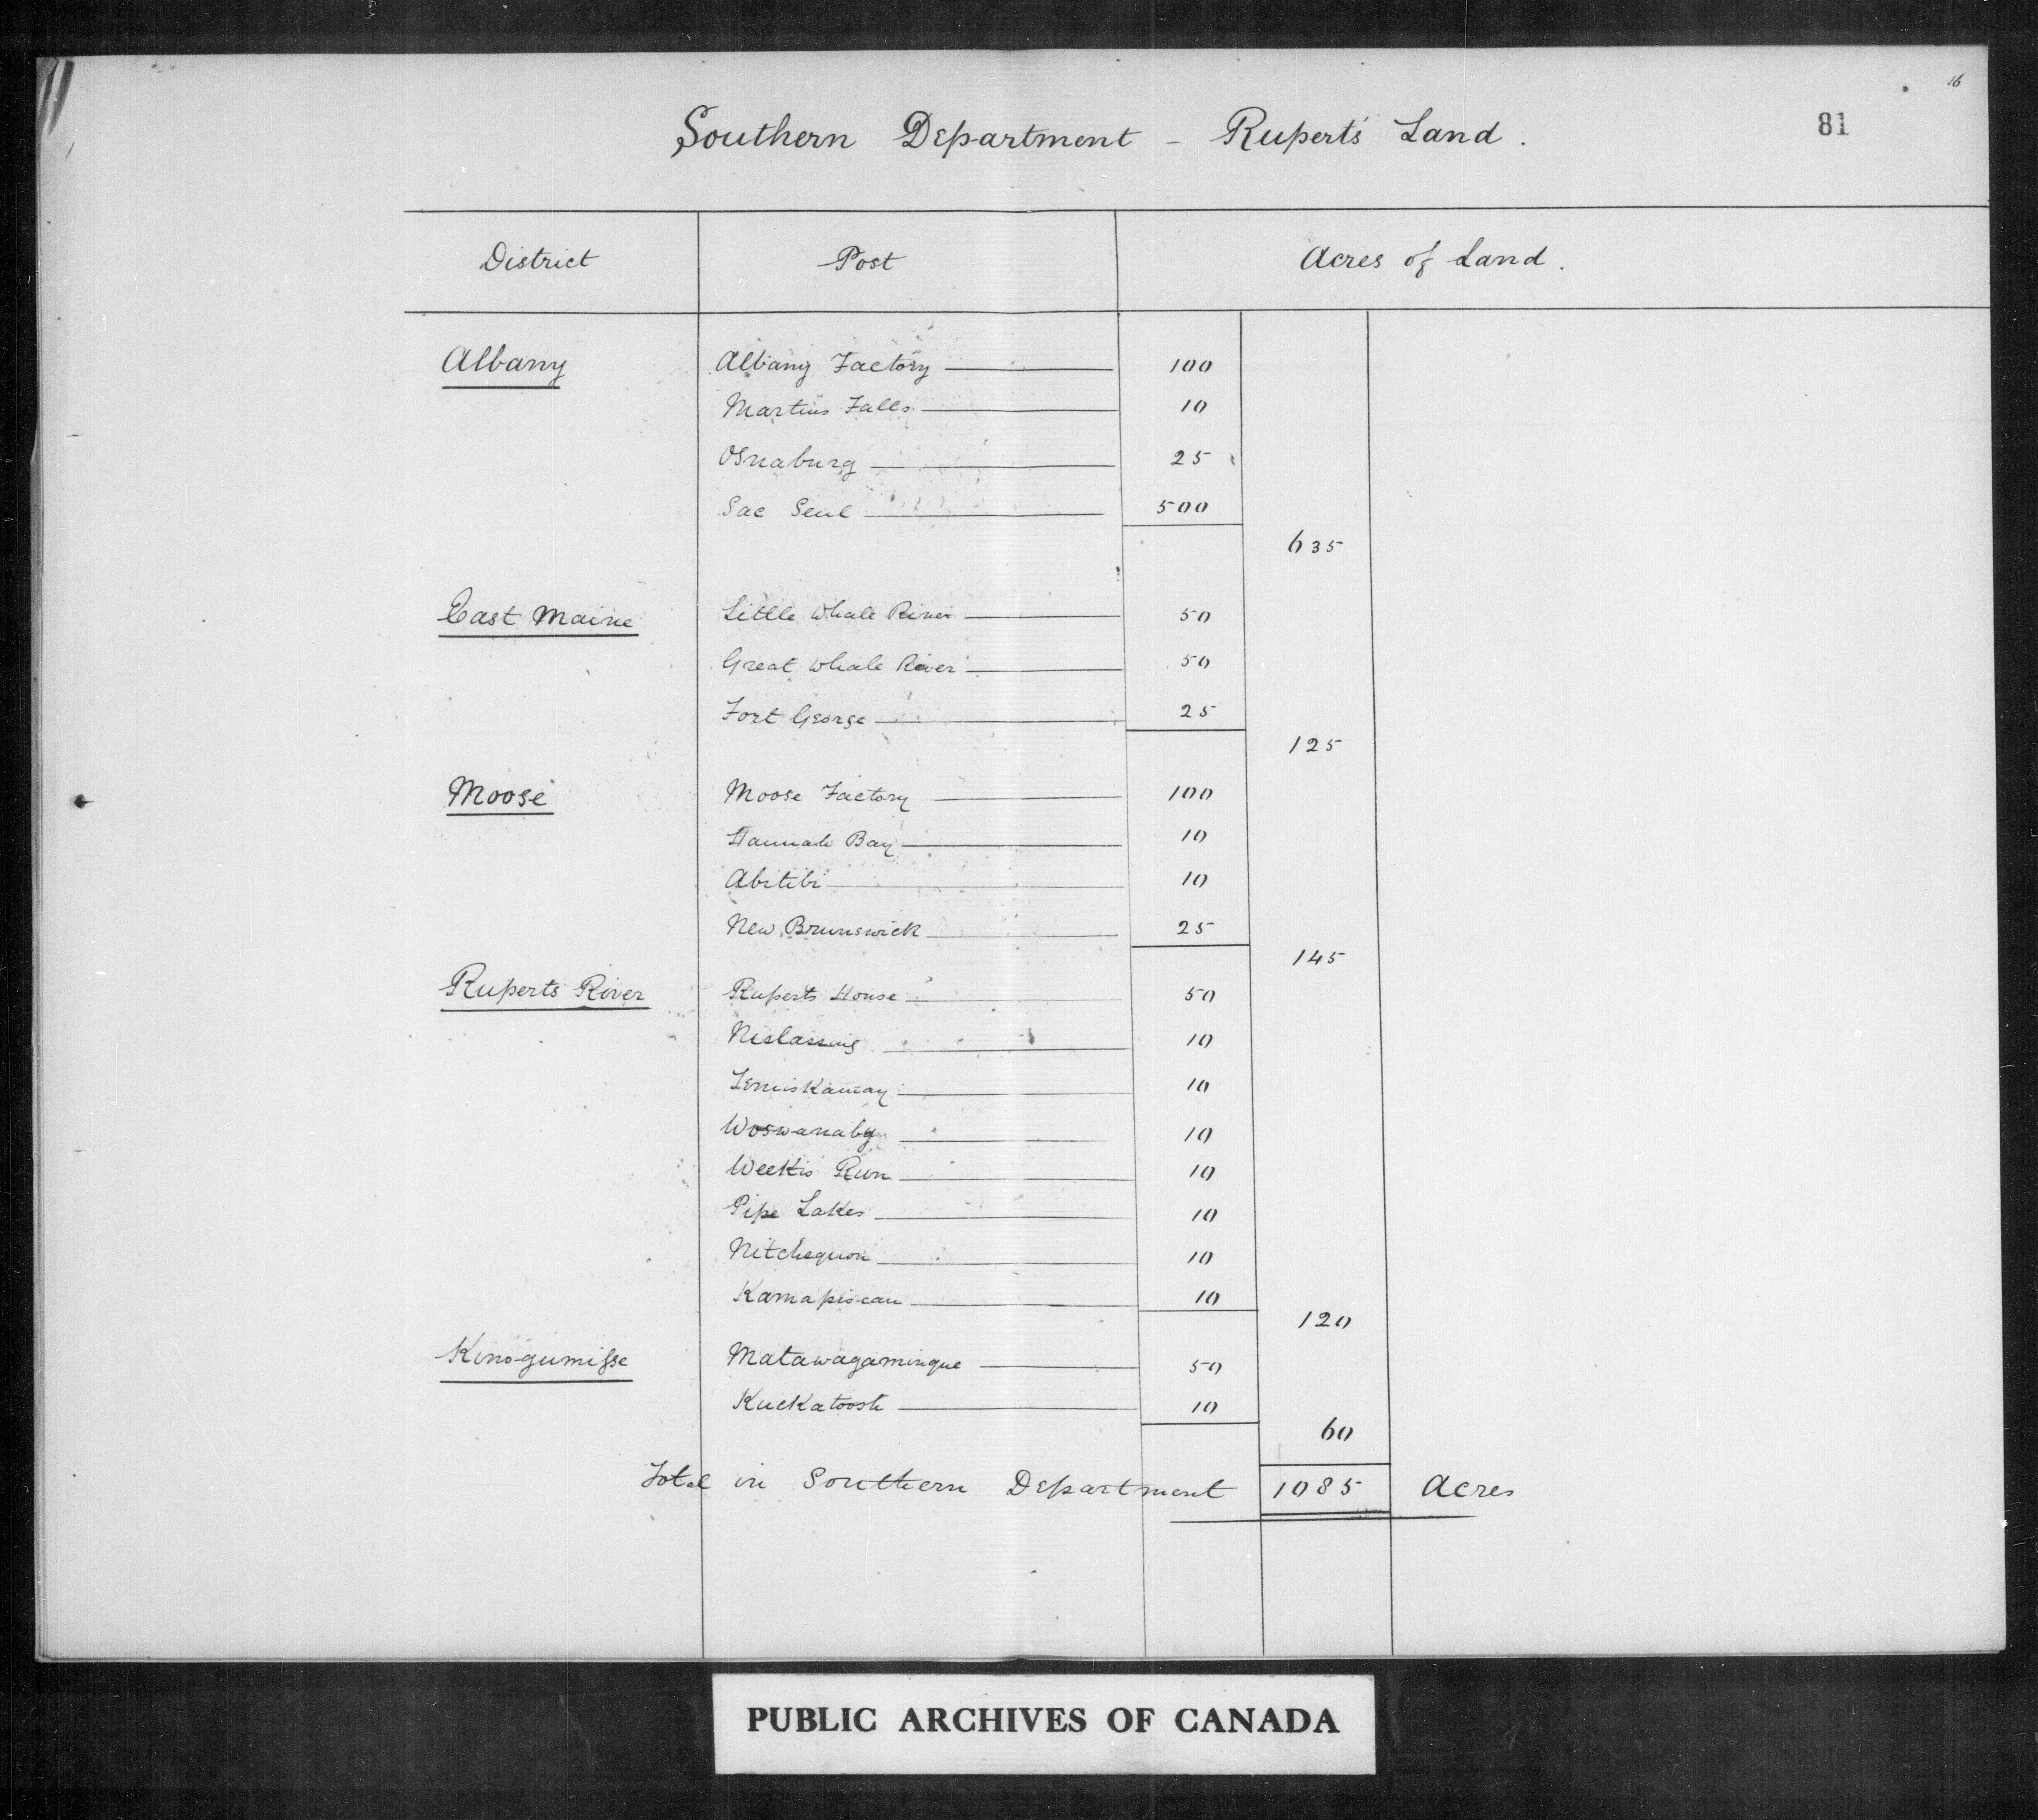 16
81
Southern Department - Rupert's Land.
District Post Acres of Land.
Albany Albany Factory 100
Martins Falls 10
Osnaburg 25
Lac Seul 500
635
East Maine Little Whale River 50
Great Whale River 50
Fort George 25
125
Moose Moose Factory 100
Hannah Bay 10
Abitibi 10
New Brunswick 25
145
Ruperts River Ruperts House 50
Mistassing 10
Temiskamay 10
Woswanaby 10
Meekis Run 10
Pipe Lakes 10
Nitchequon 10
Kamapiscan 10
120
Kinogumisse Matawagamingue 50
Kuckatoosh 10
60
Total in Southern Department 1085 Acres
PUBLIC ARCHIVES OF CANADA